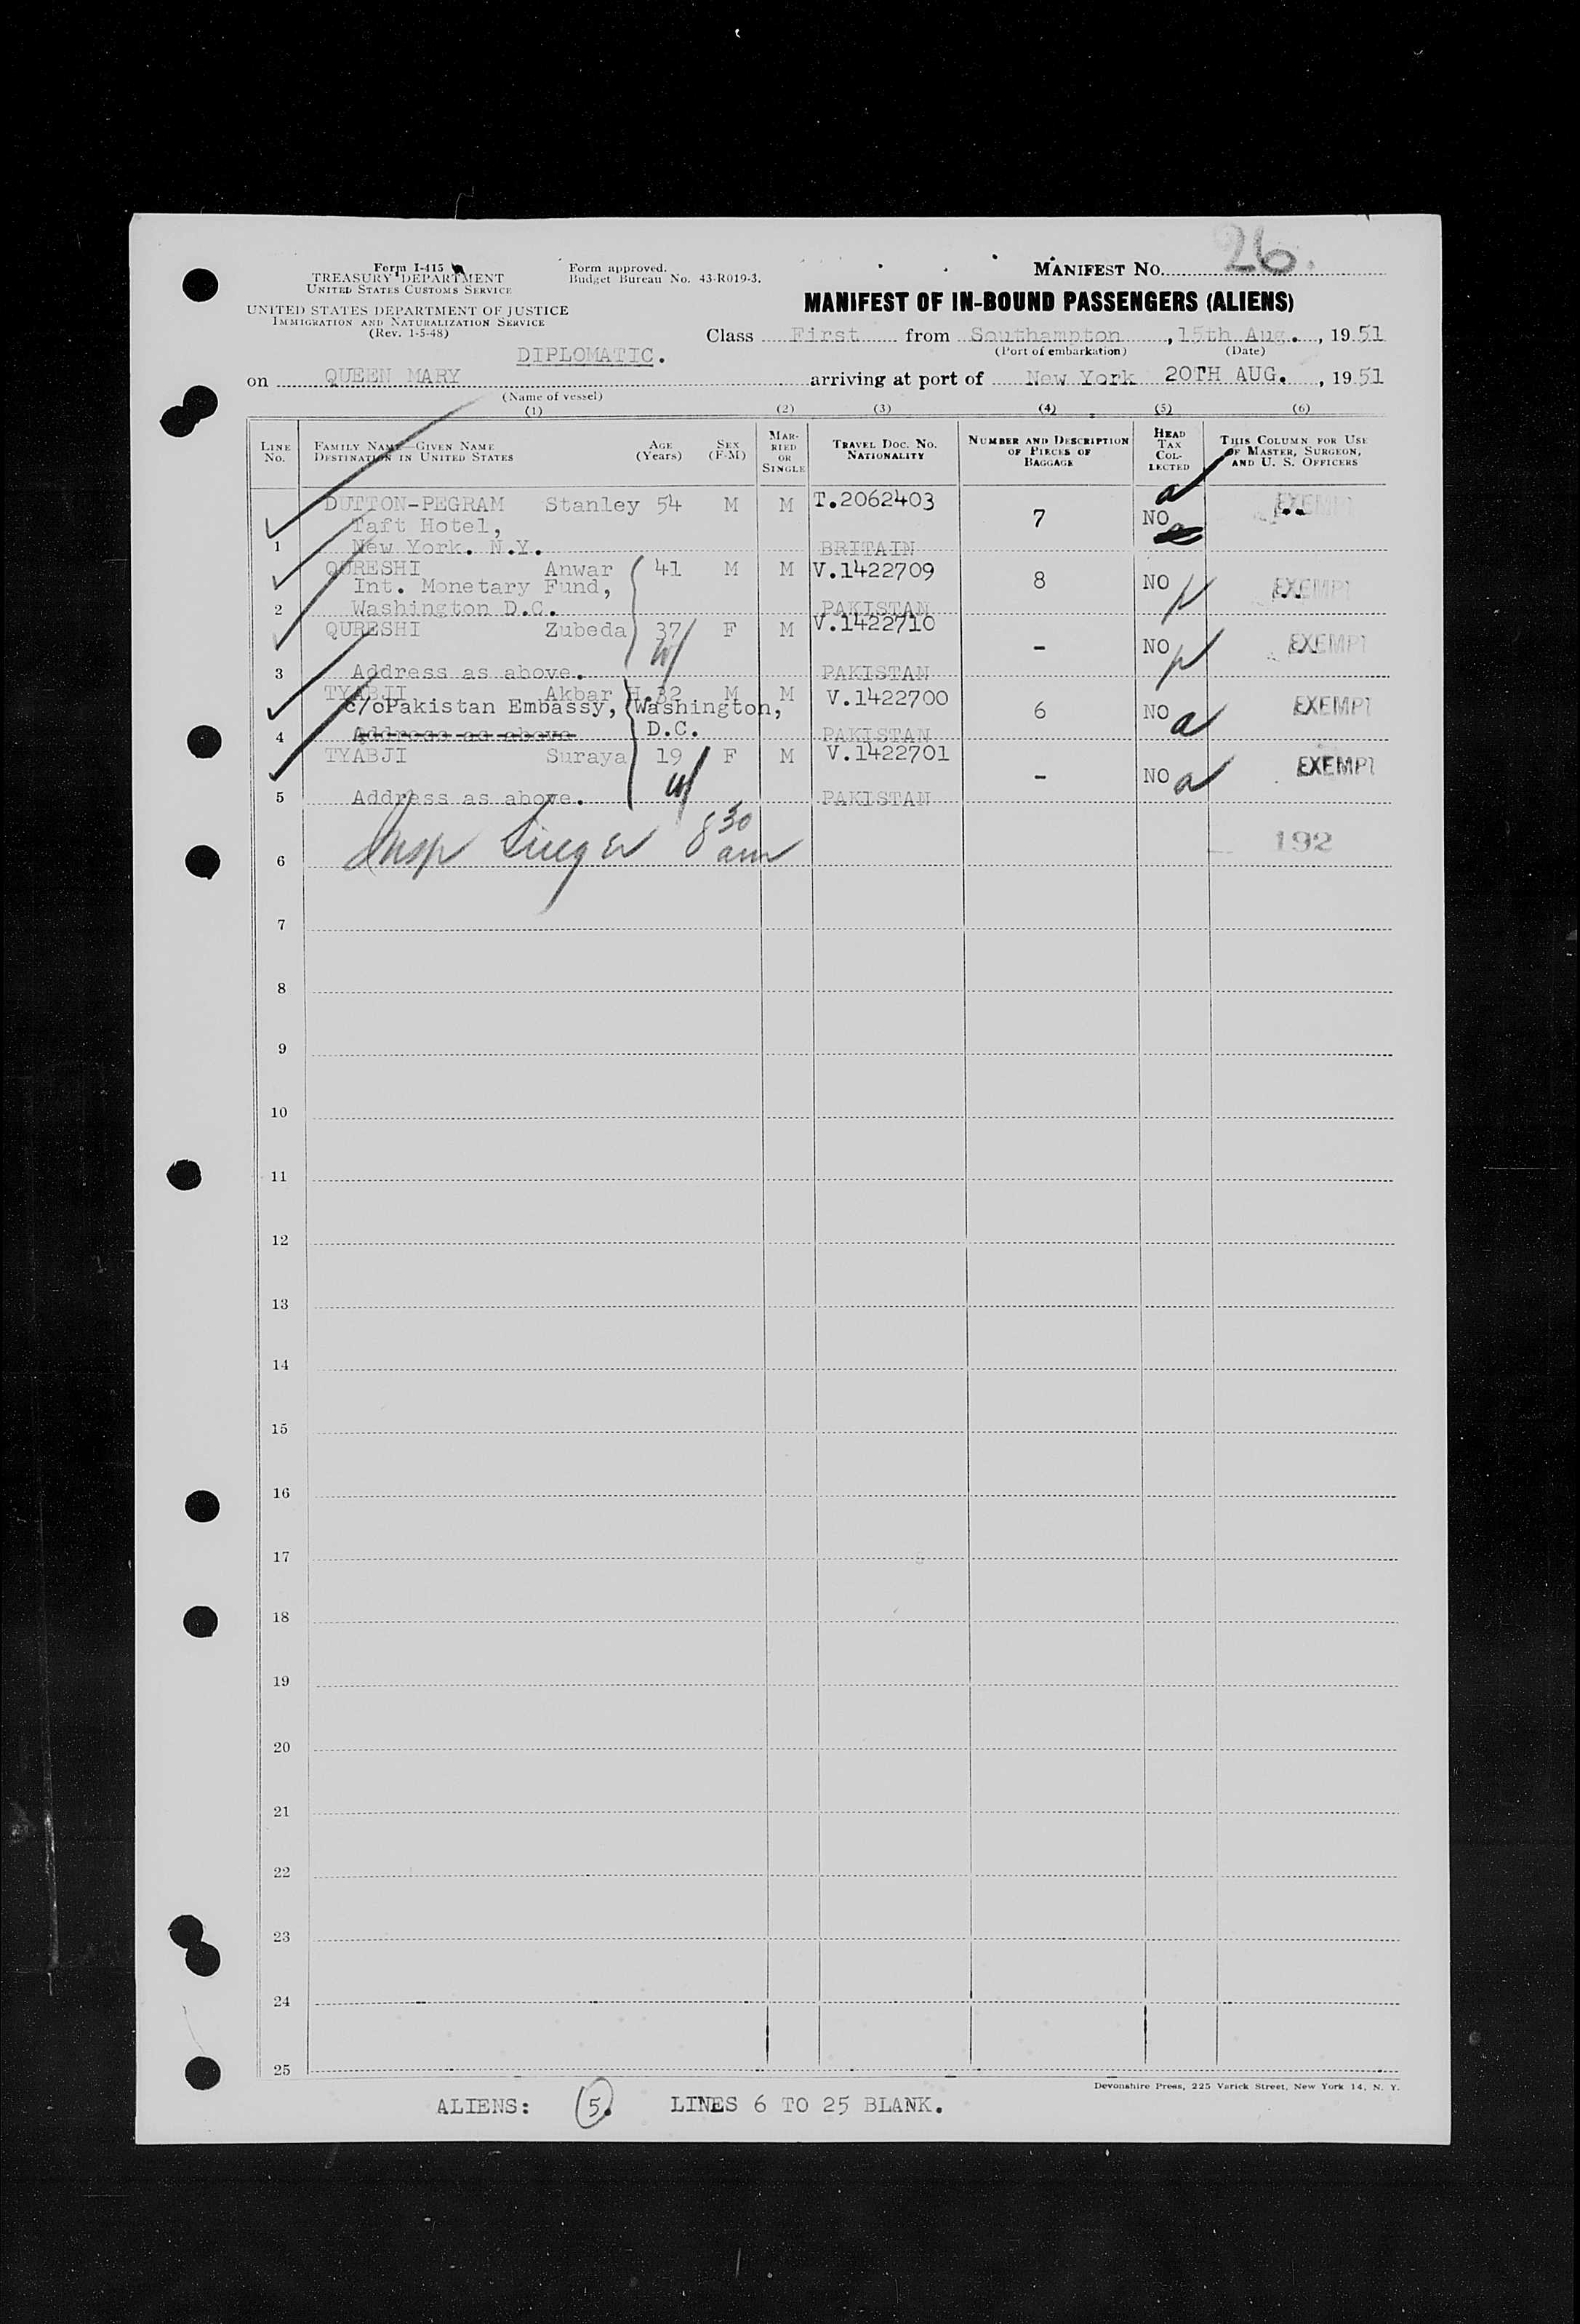 26.
Form I-415
TREASURY DEPARTMENT
UNITED STATES CUSTOMS SERVICE
Form approved.
Budget Bureau No. 43-R019-3.
MANIFEST NO.
UNITED STATES DEPARTMENT OF JUSTICE
IMMIGRATION AND NATURALIZATION SERVICE
(Rev. 1-5-48)
MANIFEST OF IN-BOUND PASSENGERS (ALIENS)
Class First from Southampton, 15th Aug., 1951
(Port of embarkation) (Date)
DIPLOMATIC.
on QUEEN MARY arriving at port of New York 20TH AUG., 1951
(Name of vessel)
(1) (2) (3) (4) (5) (6)
LINE NO. FAMILY NAME—GIVEN NAME DESTINATION IN UNITED STATES AGE (Years) SEX (F-M) MARRIED OR SINGLE TRAVEL DOC. NO. NATIONALITY NUMBER AND DESCRIPTION OF PIECES OF BAGGAGE HEAD TAX COLLECTED THIS COLUMN FOR USE OF MASTER, SURGEON, AND U. S. OFFICERS
DUTTON-PEGRAM Stanley 54 M M T.2062403 7 NO EXEMPT
Taft Hotel,
1 New York. N.Y. BRITAIN
QURESHI Anwar 41 M M V.1422709 8 NO EXEMPT
Int. Monetary Fund,
2 Washington D.C. PAKISTAN
QURESHI Zubeda 37 F M V.1422710 - NO EXEMPT
3 Address as above. PAKISTAN
TYABJI Akbar H. 32 M M V.1422700 6 NO EXEMPT
c/oPakistan Embassy, Washington,
4 Address as above D.C. PAKISTAN
TYABJI Suraya 19 F M V.1422701 - NO EXEMPT
5 Address as above. PAKISTAN
Insp 8 30 am
6 192
7
8
9
10
11
12
13
14
15
16
17
18
19
20
21
22
23
24
25
Devonshire Press, 225 Varick Street, New York 14, N. Y.
ALIENS: 5. LINES 6 TO 25 BLANK.